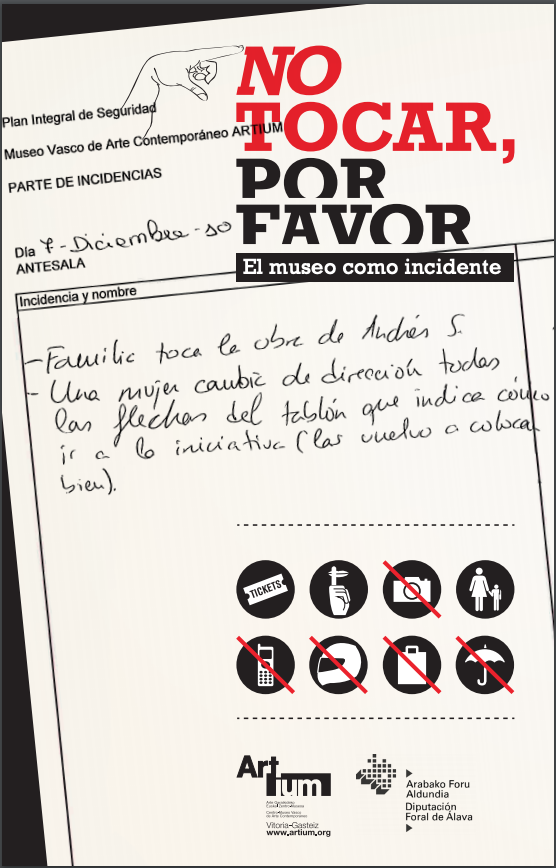 NO
TOCAR,
POR
FAVOR
El museo como incidente
Plan Integral de Seguridad
Museo Vasco de Arte Contemporáneo ARTIUM
PARTE DE INCIDENCIAS
Día 7-Diciembre-10
ANTESALA
Incidencia y nombre
- Familia toca la obra de Andrés S.
- Una mujer cambia de dirección todas
las flechas del tablón que indica cómo
ir a la iniciativa (las vuelvo a colocar
bien).
TICKETS
Artium
Vitoria-Gasteiz
www.artium.org
Arabako Foru
Aldundia
Diputación
Foral de Álava